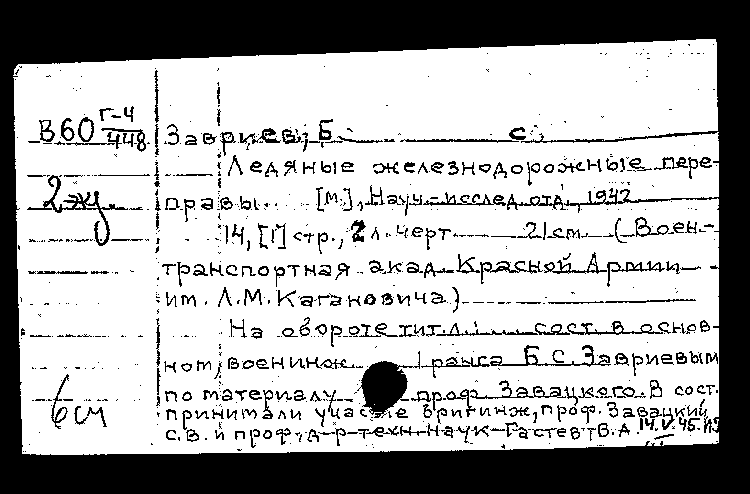 В60 Г-4
448
Завриев, Б. С.
Ледяные железнодорожные пере-
2 эк.
правы. [М.], Науч.-исслед. отд., 1942
14, [1] стр., 2 л. черт. 21 см. (Воен.-
транспортная акад. Красной Армии
им. Л.М. Кагановича)
На обороте тит. л.: ... сост. в основ-
ном, военинж. 1 ранга Б.С. Завриевым
по материалу проф. Завацкого. В сост.
принимали участие бригинж., проф. Завацкий
С.В. и проф., д-р техн. наук Гастев В.А. 14.V.45.
6 см